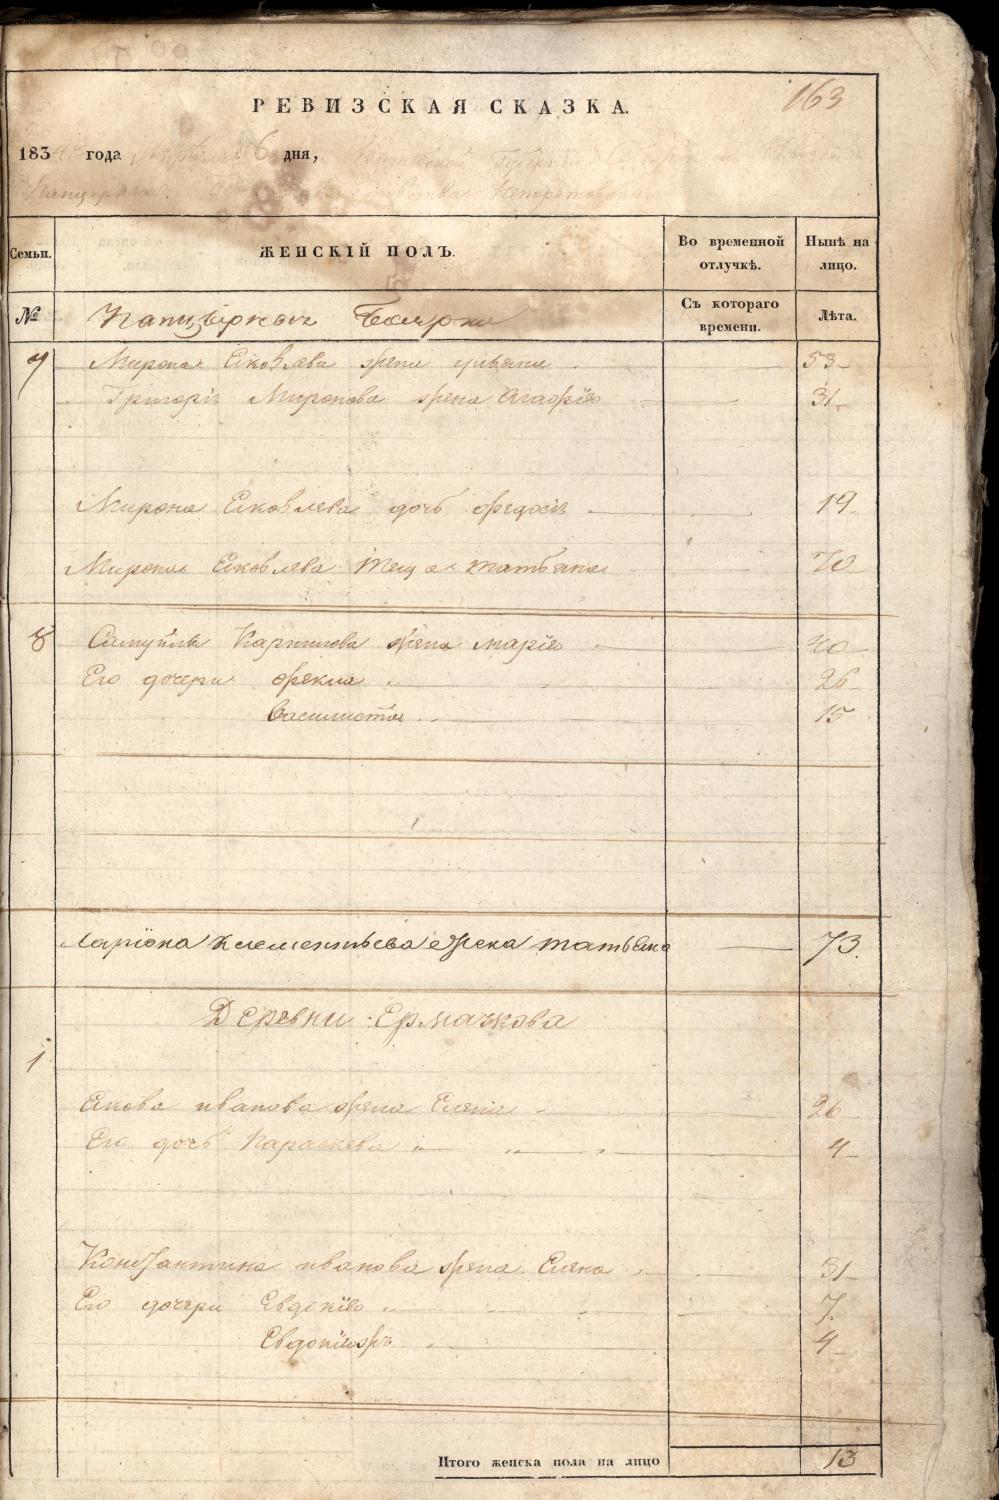 163
РЕВИЗСКАЯ СКАЗКА.
183 года 6 дня,
Семьи. ЖЕНСКІЙ ПОЛЪ. Во временной отлучкѣ. Нынѣ на лицо.
№ Съ котораго времени. Лѣта.
7 Мирона Яковлева жена 53
Григорія Миронова жена Агафія 31
Мирона Яковлева дочь Федосія 19
Мирона Яковлева теща татьяна 70
8 Самуйлы Карнилова жена марія 40
Его дочери Фекла 26
Василиста 15
Ларіона Клементьева жена татьяна 73.
Деревни Ермачкова
1
Якова иванова жена Елена 26
Его дочь Параскева 4
Константина иванова жена Елена 31
Его дочери Евдокія 7
4
Итого женска пола на лицо 13